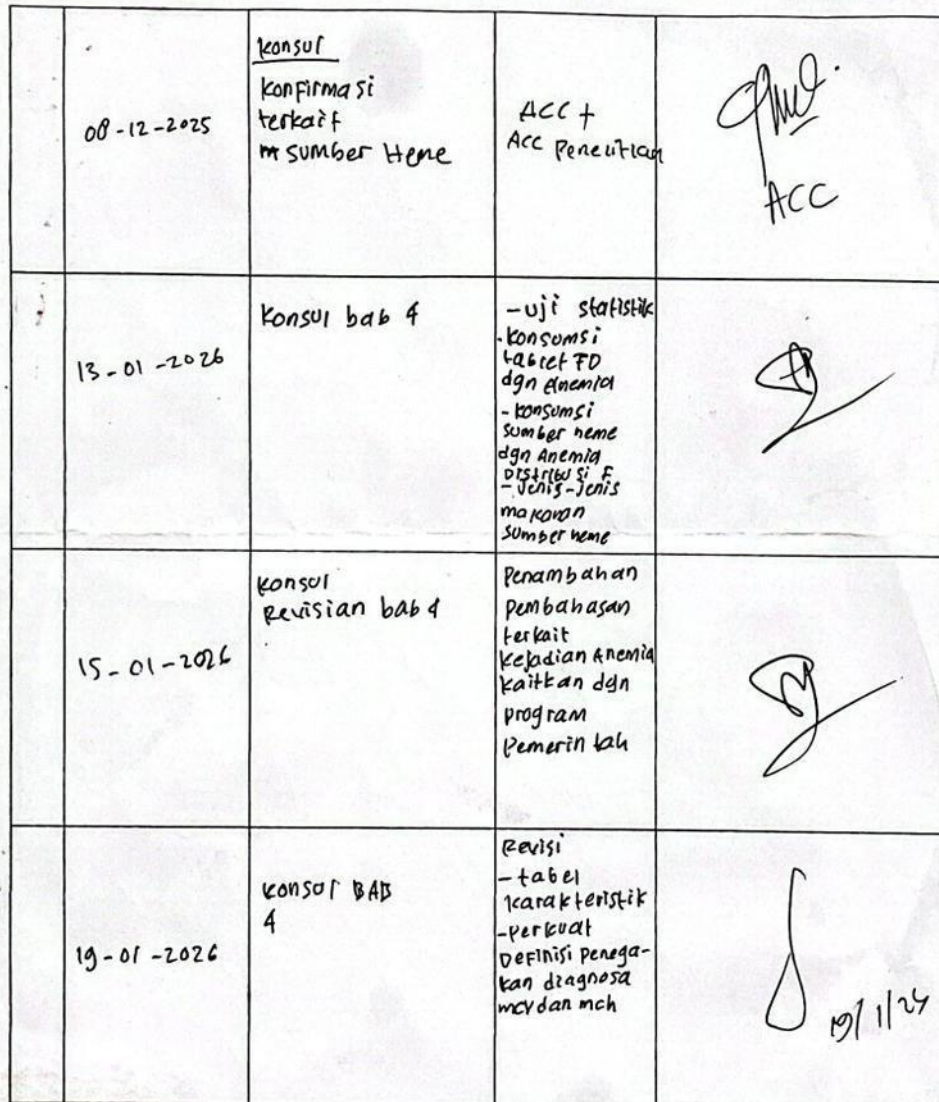 08-12-2025
Konsul
Konfirmasi
terkait
m sumber Heme
ACC +
ACC Penelitian
ACC
13-01-2026
Konsul bab 4
- uji statistik
- Konsumsi
tablet FD
dgn Anemia
- Konsumsi
sumber heme
dgn Anemia
Distribusi F
- Jenis-jenis
makanan
sumber heme
15-01-2026
Konsul
Revisian bab 4
Penambahan
pembahasan
terkait
Kejadian Anemia
kaitkan dgn
program
Pemerintah
19-01-2026
Konsul BAB
4
Revisi
- tabel
karakteristik
- perkuat
Definisi penega-
kan diagnosa
mcv dan mch
19/1/24